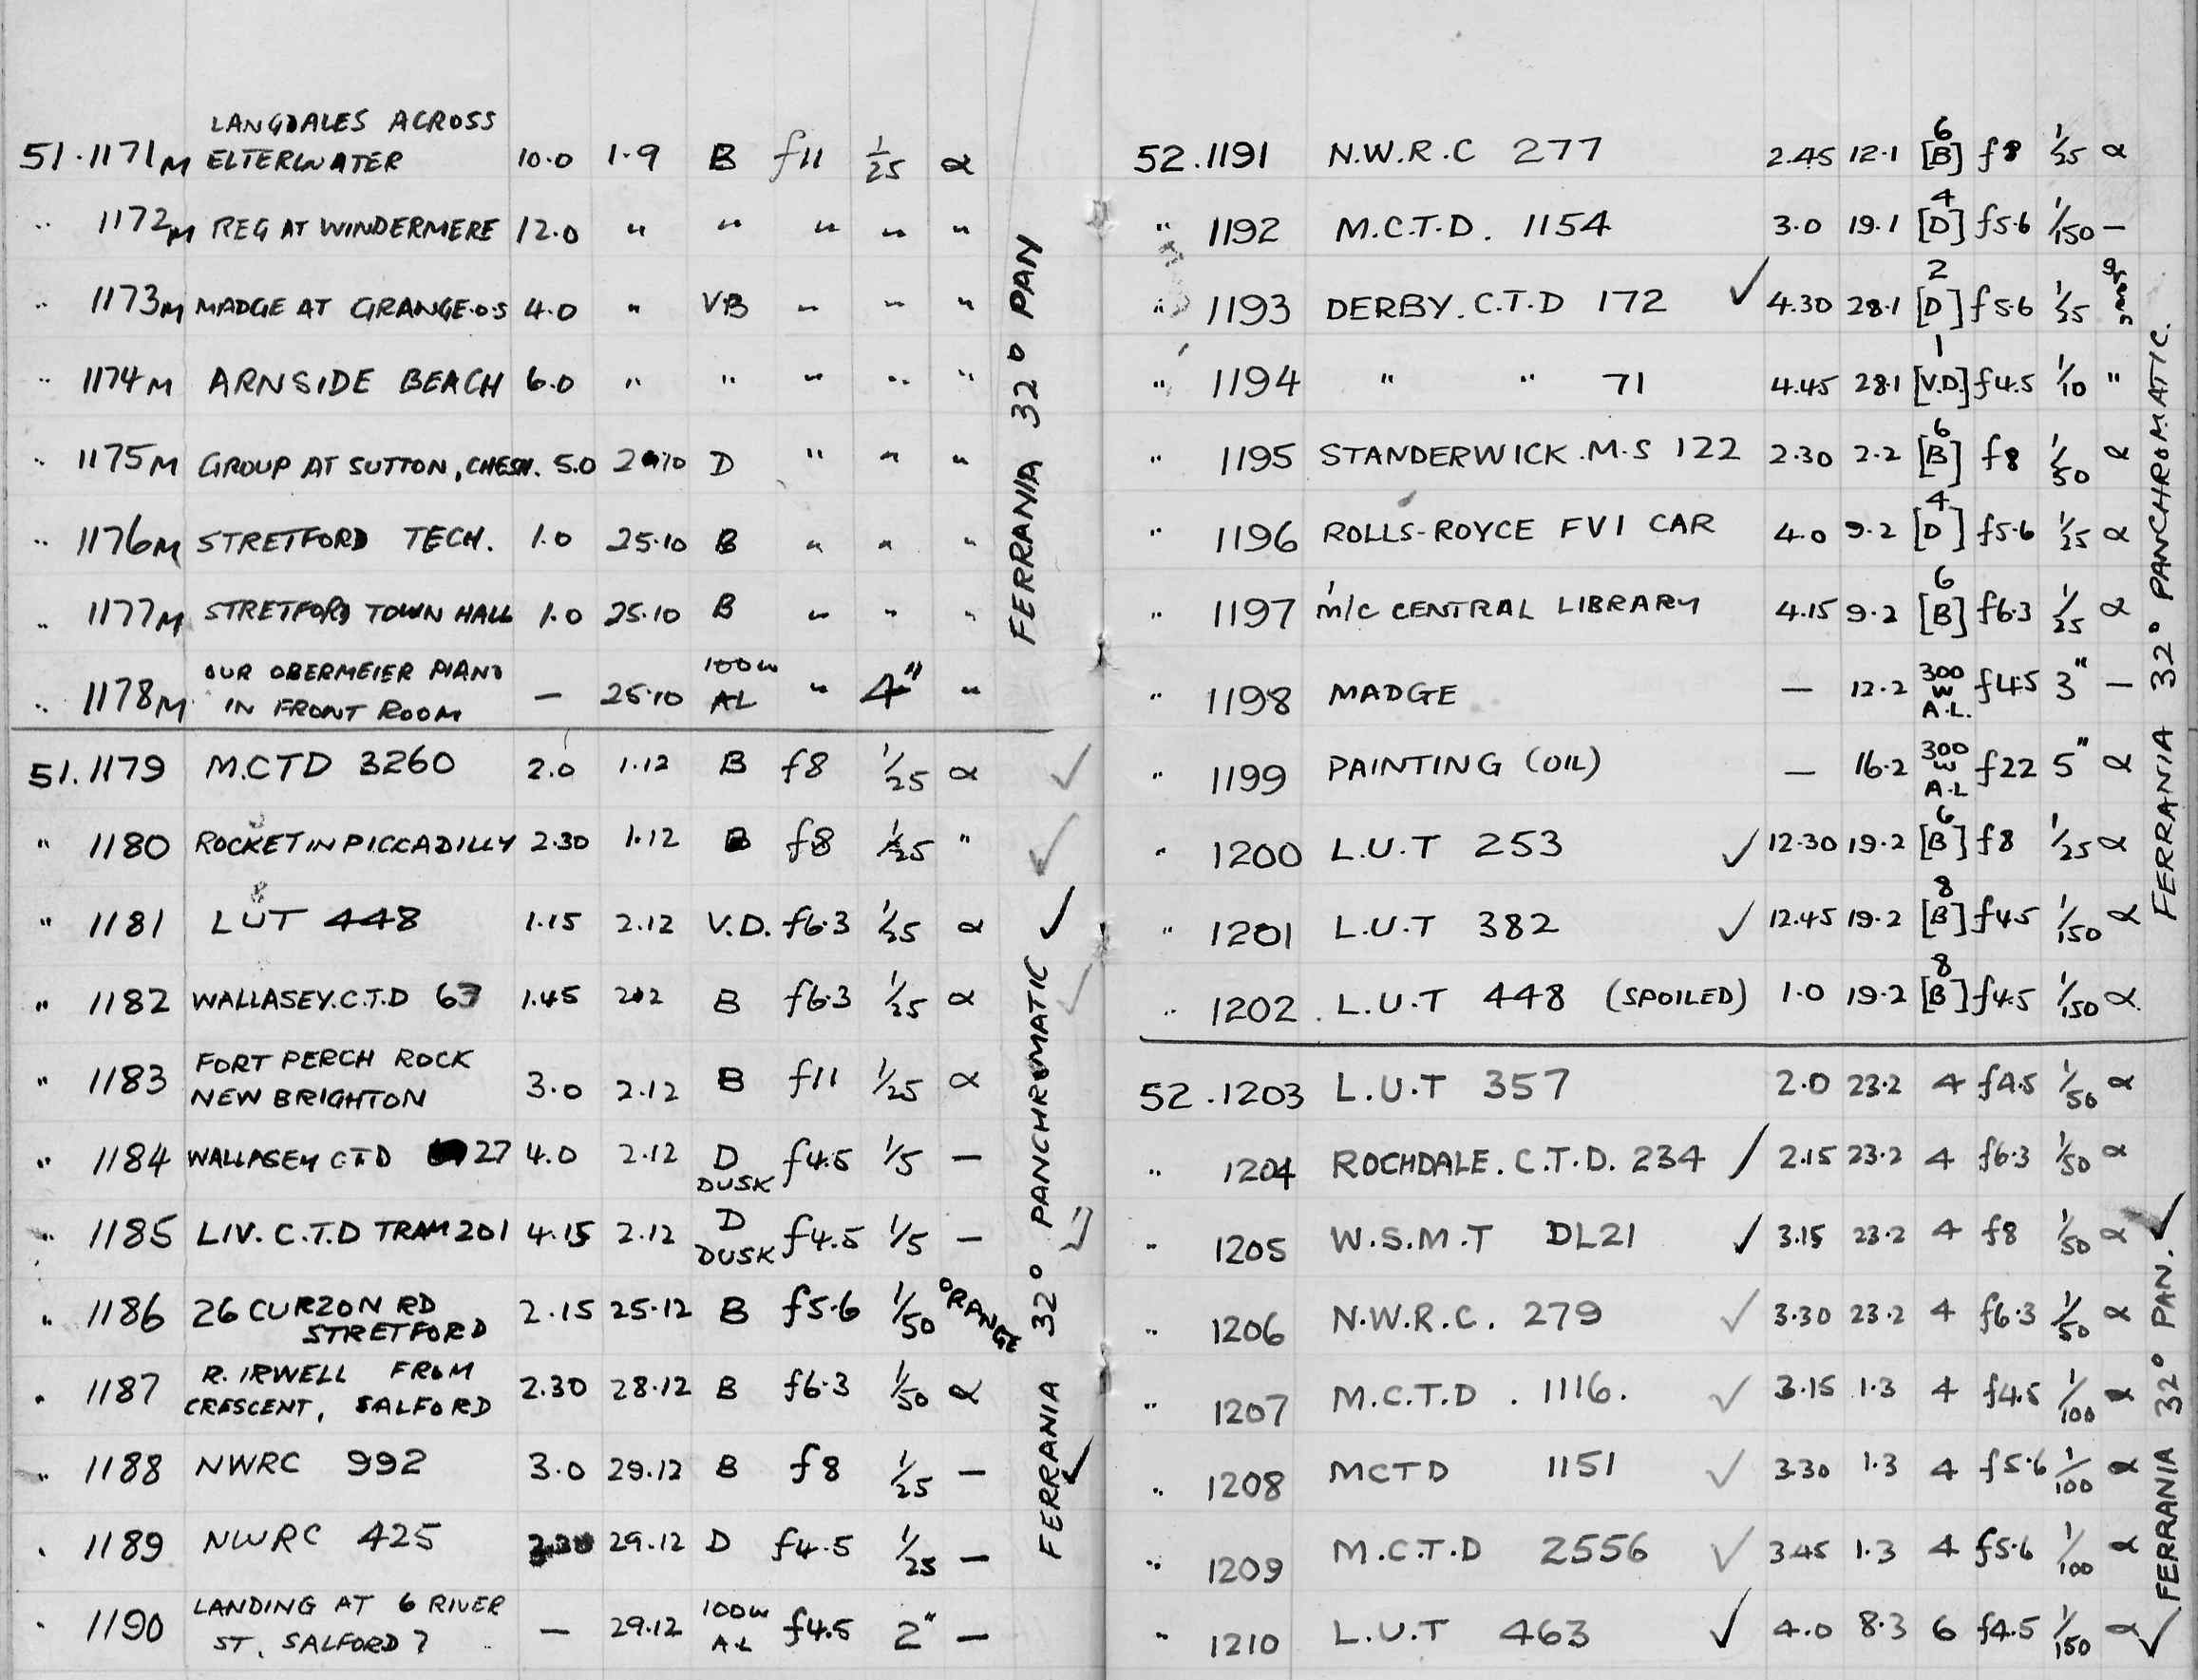 LANGDALES ACROSS
51.1171M ELTERWATER 10.0 1.9 B f11 1/25 α
" 1172M REG AT WINDERMERE 12.0 " " " " "
" 1173M MADGE AT GRANGE.O.S 4.0 " VB " " "
" 1174M ARNSIDE BEACH 6.0 " " " " "
" 1175M GROUP AT SUTTON, CHESH. 5.0 D " " "
" 1176M STRETFORD TECH. 1.0 25.10 B " " "
" 1177M STRETFORD TOWN HALL 1.0 25.10 B " " "
OUR OBERMEIER PIANO 100W
" 1178M IN FRONT ROOM — 25.10 AL " 4" "
FERRANIA 32° PAN
51.1179 M.CTD 3260 2.0 1.12 B f8 1/25 α ✓
" 1180 ROCKET IN PICCADILLY 2.30 1.12 B f8 1/25 " ✓
" 1181 LUT 448 1.15 2.12 V.D. f6.3 1/25 α ✓
" 1182 WALLASEY.C.T.D 63 1.45 2.12 B f6.3 1/25 α ✓
FORT PERCH ROCK
" 1183 NEW BRIGHTON 3.0 2.12 B f11 1/25 α
" 1184 WALLASEY CTD 27 4.0 2.12 D f4.5 1/5 —
DUSK
" 1185 LIV. C.T.D TRAM 201 4.15 2.12 D f4.5 1/5 — ✓
DUSK
" 1186 26 CURZON RD 2.15 25.12 B f5.6 1/50 ORANGE
STRETFORD
R. IRWELL FROM
" 1187 CRESCENT, SALFORD 2.30 28.12 B f6.3 1/50 α
" 1188 NWRC 992 3.0 29.12 B f8 1/25 — ✓
" 1189 NWRC 425 29.12 D f4.5 1/25 —
LANDING AT 6 RIVER 100W
" 1190 ST. SALFORD 7 — 29.12 A.L f4.5 2" —
FERRANIA 32° PANCHROMATIC
6
52.1191 N.W.R.C 277 2.45 12.1 [B] f8 1/25 α
4
" 1192 M.C.T.D. 1154 3.0 19.1 [D] f5.6 1/150 —
2
" 1193 DERBY.C.T.D 172 ✓ 4.30 28.1 [D] f5.6 1/25
1
" 1194 " " 71 4.45 28.1 [V.D.] f4.5 1/10 "
6
" 1195 STANDERWICK.M.S 122 2.30 2.2 [B] f8 1/50 α
4
" 1196 ROLLS-ROYCE FV1 CAR 4.0 9.2 [D] f5.6 1/25 α
6
" 1197 M/C CENTRAL LIBRARY 4.15 9.2 [B] f6.3 1/25 α
" 1198 MADGE — 12.2 300 W A.L. f4.5 3" —
" 1199 PAINTING (OIL) — 16.2 300 W A.L f22 5" α
6
" 1200 L.U.T 253 ✓ 12.30 19.2 [B] f8 1/25 α
8
" 1201 L.U.T 382 ✓ 12.45 19.2 [B] f4.5 1/150 α
8
" 1202 L.U.T 448 (SPOILED) 1.0 19.2 [B] f4.5 1/150 α
FERRANIA 32° PANCHROMATIC.
52.1203 L.U.T 357 2.0 23.2 4 f4.5 1/50 α
" 1204 ROCHDALE.C.T.D. 234 / 2.15 23.2 4 f6.3 1/50 α
" 1205 W.S.M.T DL21 ✓ 3.15 23.2 4 f8 1/50 α ✓
" 1206 N.W.R.C. 279 ✓ 3.30 23.2 4 f6.3 1/50 α
" 1207 M.C.T.D. 1116. ✓ 3.15 1.3 4 f4.5 1/100 α
" 1208 MCTD 1151 ✓ 3.30 1.3 4 f5.6 1/100 α
" 1209 M.C.T.D 2556 ✓ 3.45 1.3 4 f5.6 1/100 α
" 1210 L.U.T 463 ✓ 4.0 8.3 6 f4.5 1/150 α ✓
FERRANIA 32° PAN.